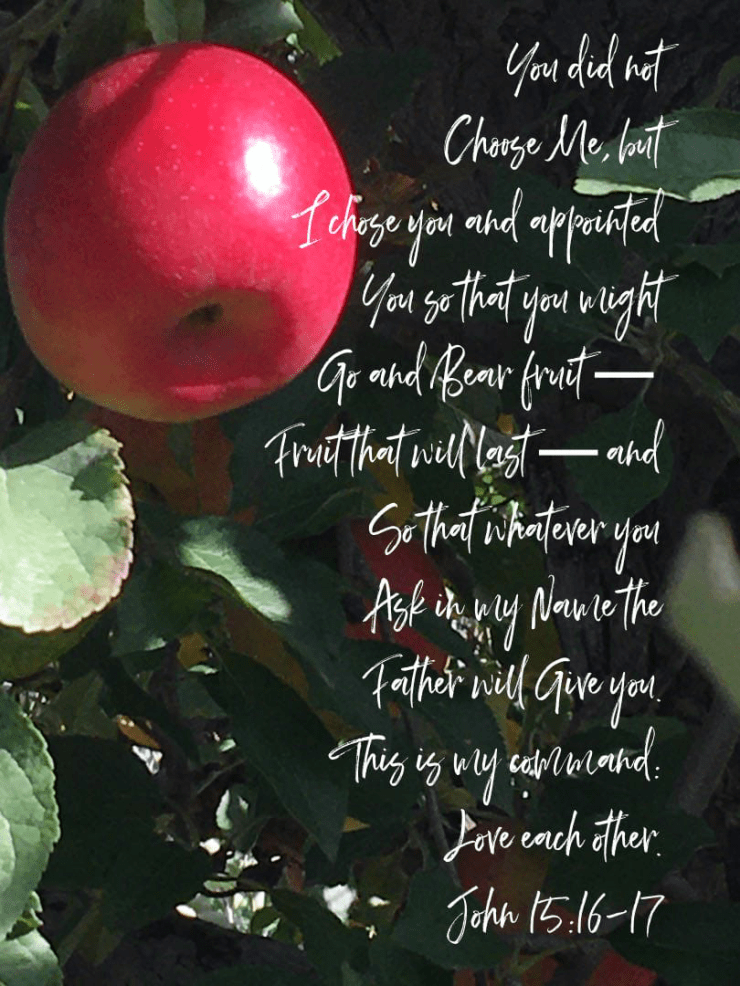 You did not
Choose Me, but
I chose you and appointed
You so that you might
Go and Bear fruit —
Fruit that will last — and
So that whatever you
Ask in my Name the
Father will Give you.
This is my command:
Love each other.
John 15:16-17